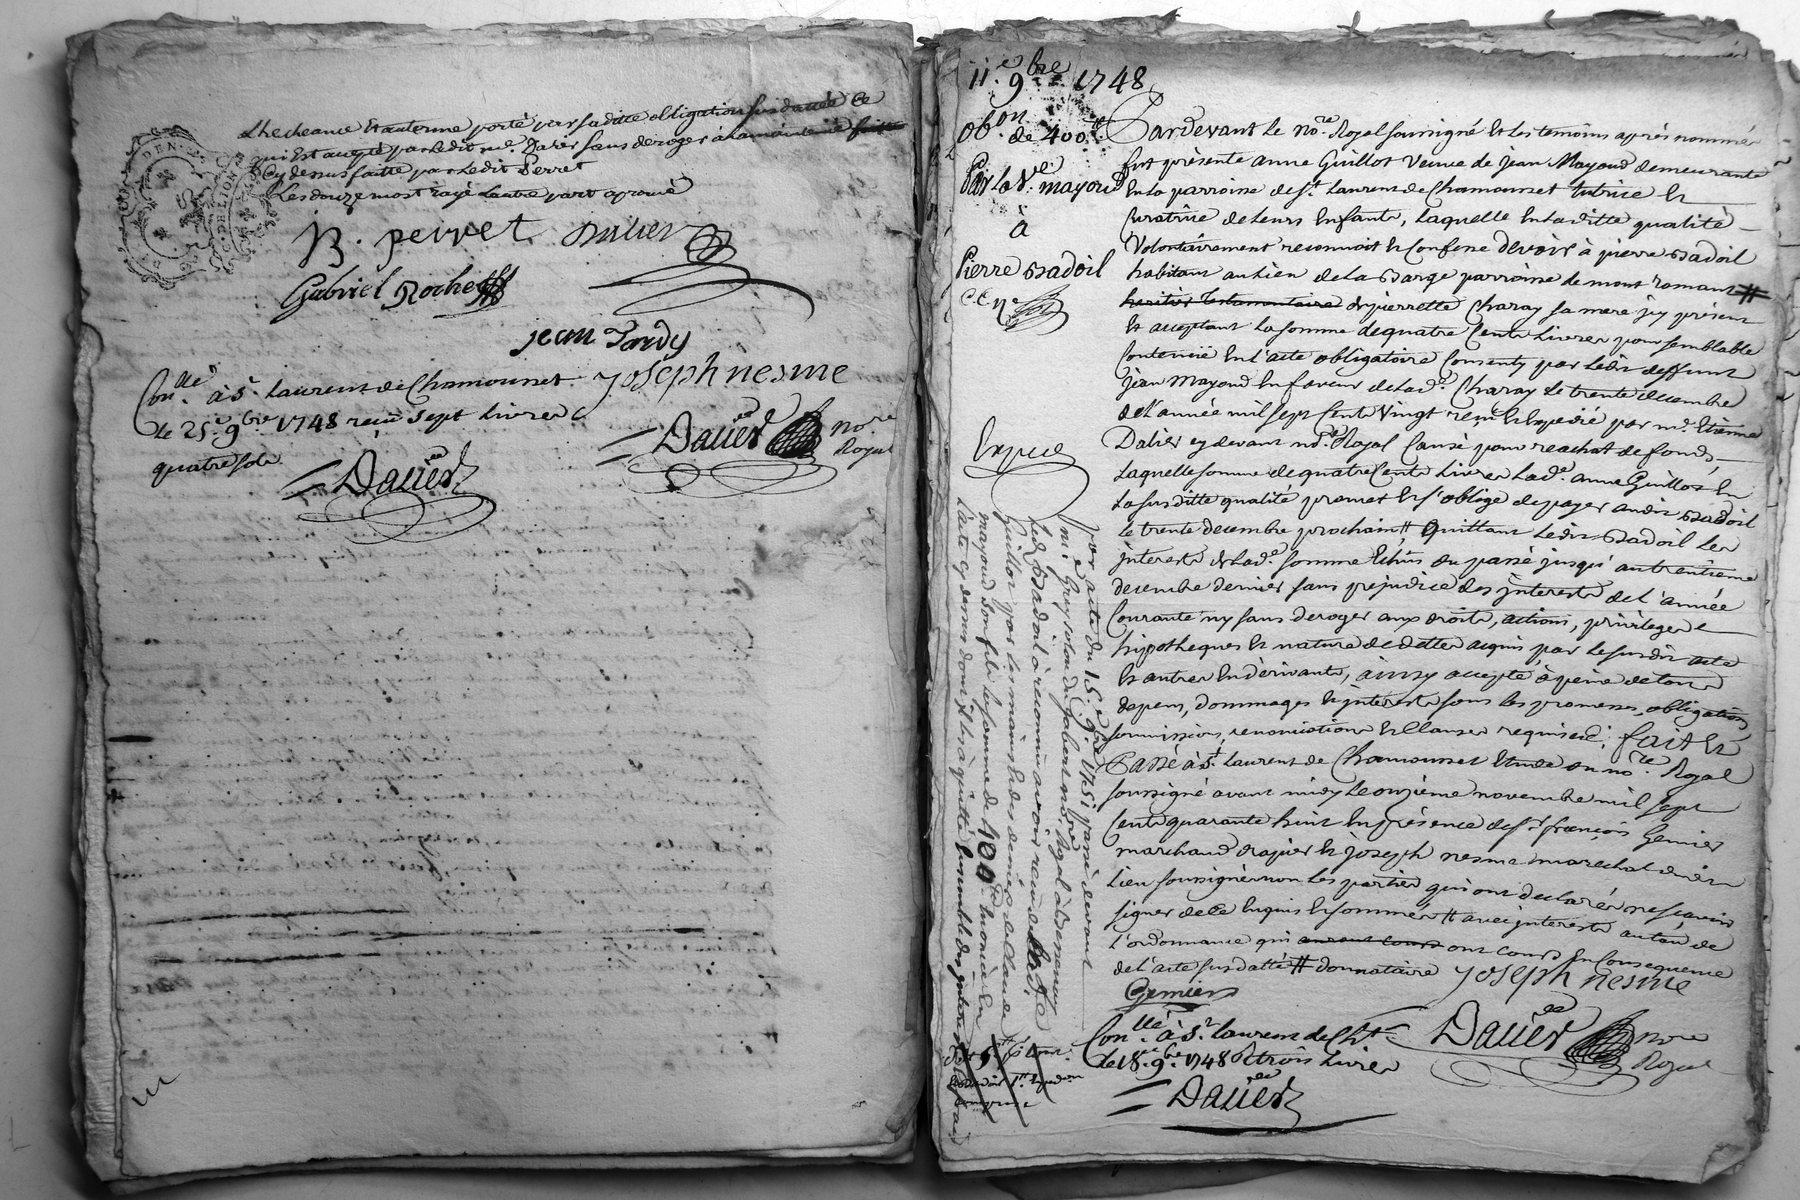 Lhecheance et auterme porté par sa ditte obligation susdattée ce
qui est accepté par ledit md. Darer sans deroger à
cy dessus faitte par ledit Perret
Les douze mots rayé Lautre part aprouvé
GEN. DE LION
B. peiret Dalier
Gabriel Roche
jean Tardy
joseph nesme
Con.llé à St. Laurent de Chamousset
le 25e 9bre 1748 receu sept Livres
quatre sols
Dalier
Dalier nore
Royal
11e 9bre 1748
Ob.on
de 400tt
Par la Ve. mayoud
à
Pierre Badoil
Pardevant le nore. Royal soussigné et les temoins après nommés
fut présente anne Guillot Veuve de jean Mayoud demeurante
en la parroisse de St. Laurent de Chamousset tutrice et
Curatrice de leurs enfants, laquelle en laditte qualité
Volontairement reconnoit et confesse devoir à pierre Badoil
habitant au lieu de la Barge parroisse de mont romant #
heritier testamentaire de pierrette Charay sa mere jcy présent
et acceptant la somme de quatre Cents Livres pour semblable
Contenüe en l'acte obligatoire Consenty par ledit deffunt
jean Mayoud en faveur de lad. Charay le trente decembre
de l'année mil sept Cents Vingt receu et expedié par me. Etienne
Dalier cy devant nore. Royal Causé pour reachat de fonds,
Laquelle somme de quatre Cents Livres lade. anne Guillot en
la susditte qualité promet et s'oblige de payer audit Badoil
le trente decembre prochain # quittant ledit Badoil les
jnterests de lad. somme echus du passé jusqu'au trentieme
decembre dernier sans prejudice des jnterests de l'année
Courante ny sans deroger aux droits, actions, privileges
hipotheques et nature de dette acquis par le susdit acte
et autres en derivants, ainsy accepté à peine de tous
depens, dommages et jnterests sous les promesses, obligations,
soumissions, renonciations et Clauses requises, fait et
Passé à St. Laurent de Chamousset Etude du nore. Royal
soussigné avant midy le onzieme novembre mil sept
Cents quarante huit en présence de sr. françois Gemier
marchand drapier et joseph nesme marechal dudit
Lieu soussignés non les parties qui ont declaré ne scavoir
signer de ce enquis et sommés # avec jnterests au taux de
l'ordonnance qui auront cours ont cours en consequence
de l'acte susdatté # donnataire joseph nesme
Gemier
Con.llé à St. Laurent de Cht.
le 18e 9bre 1748 trois Livres
Dalier
Dalier nore
Royal
par acte du 15e 9bre 1751 passé devant
led. Badoil à reconnu avoir receu de lad.
Guillot par les mains et des deniers de Claude
mayoud son fils la somme de 400tt enoncée en
l'acte cy dessus dont il la à quitté